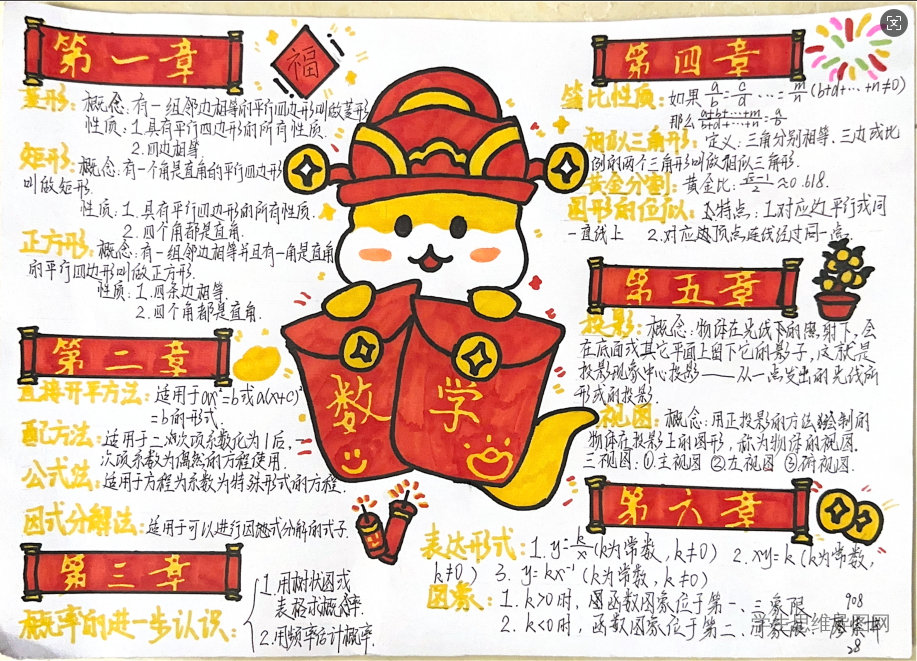 第一章
菱形：概念：有一组邻边相等的平行四边形叫做菱形
性质：1.具有平行四边形的所有性质.
2.四边相等
矩形：概念：有一个角是直角的平行四边形
叫做矩形.
性质：1.具有平行四边形的所有性质.
2.四个角都是直角.
正方形：概念：有一组邻边相等并且有一角是直角
的平行四边形叫做正方形.
性质：1.四条边相等
2.四个角都是直角.
第二章
直接开平方法：适用于ax²=b或a(x+c)²
=b的形式.
配方法：适用于二次项系数化为1后，一
次项系数为偶然的方程使用.
公式法：适用于方程为系数为特殊形式的方程.
因式分解法：适用于可以进行因式分解的式子
第三章
概率的进一步认识：
1.用树状图或
表格求概率.
2.用频率估计概率.
福
数学
第四章
等比性质：如果a/b=c/d…=m/n(b+d+…+n≠0)
那么a+b+…+m/b+d+…+n=a/b
相似三角形：定义：三角分别相等、三边成比
例的两个三角形叫做相似三角形.
黄金分割：黄金比：√5-1/2≈0.618.
图形的位似：特点：1.对应边平行或同
一直线上 2.对应顶点连线经过同一点.
第五章
投影：概念：物体在光线下的照射下，会
在底面或其它平面上留下它的影子，这就是
投影现象中心投影——从一点发出的光线所
形成的投影.
视图：概念：用正投影的方法绘制的
物体在投影上的图形，称为物体的视图.
三视图：①.主视图 ②左视图 ③俯视图.
第六章
表达形式：1.y=k/x(k为常数，k≠0) 2.xy=k(k为常数，
k≠0) 3.y=kx⁻¹(k为常数，k≠0)
图象：1.k>0时，图函数图象位于第一、三象限
2.k<0时，函数图象位于第二、四象限
908
28
学生思维导图网